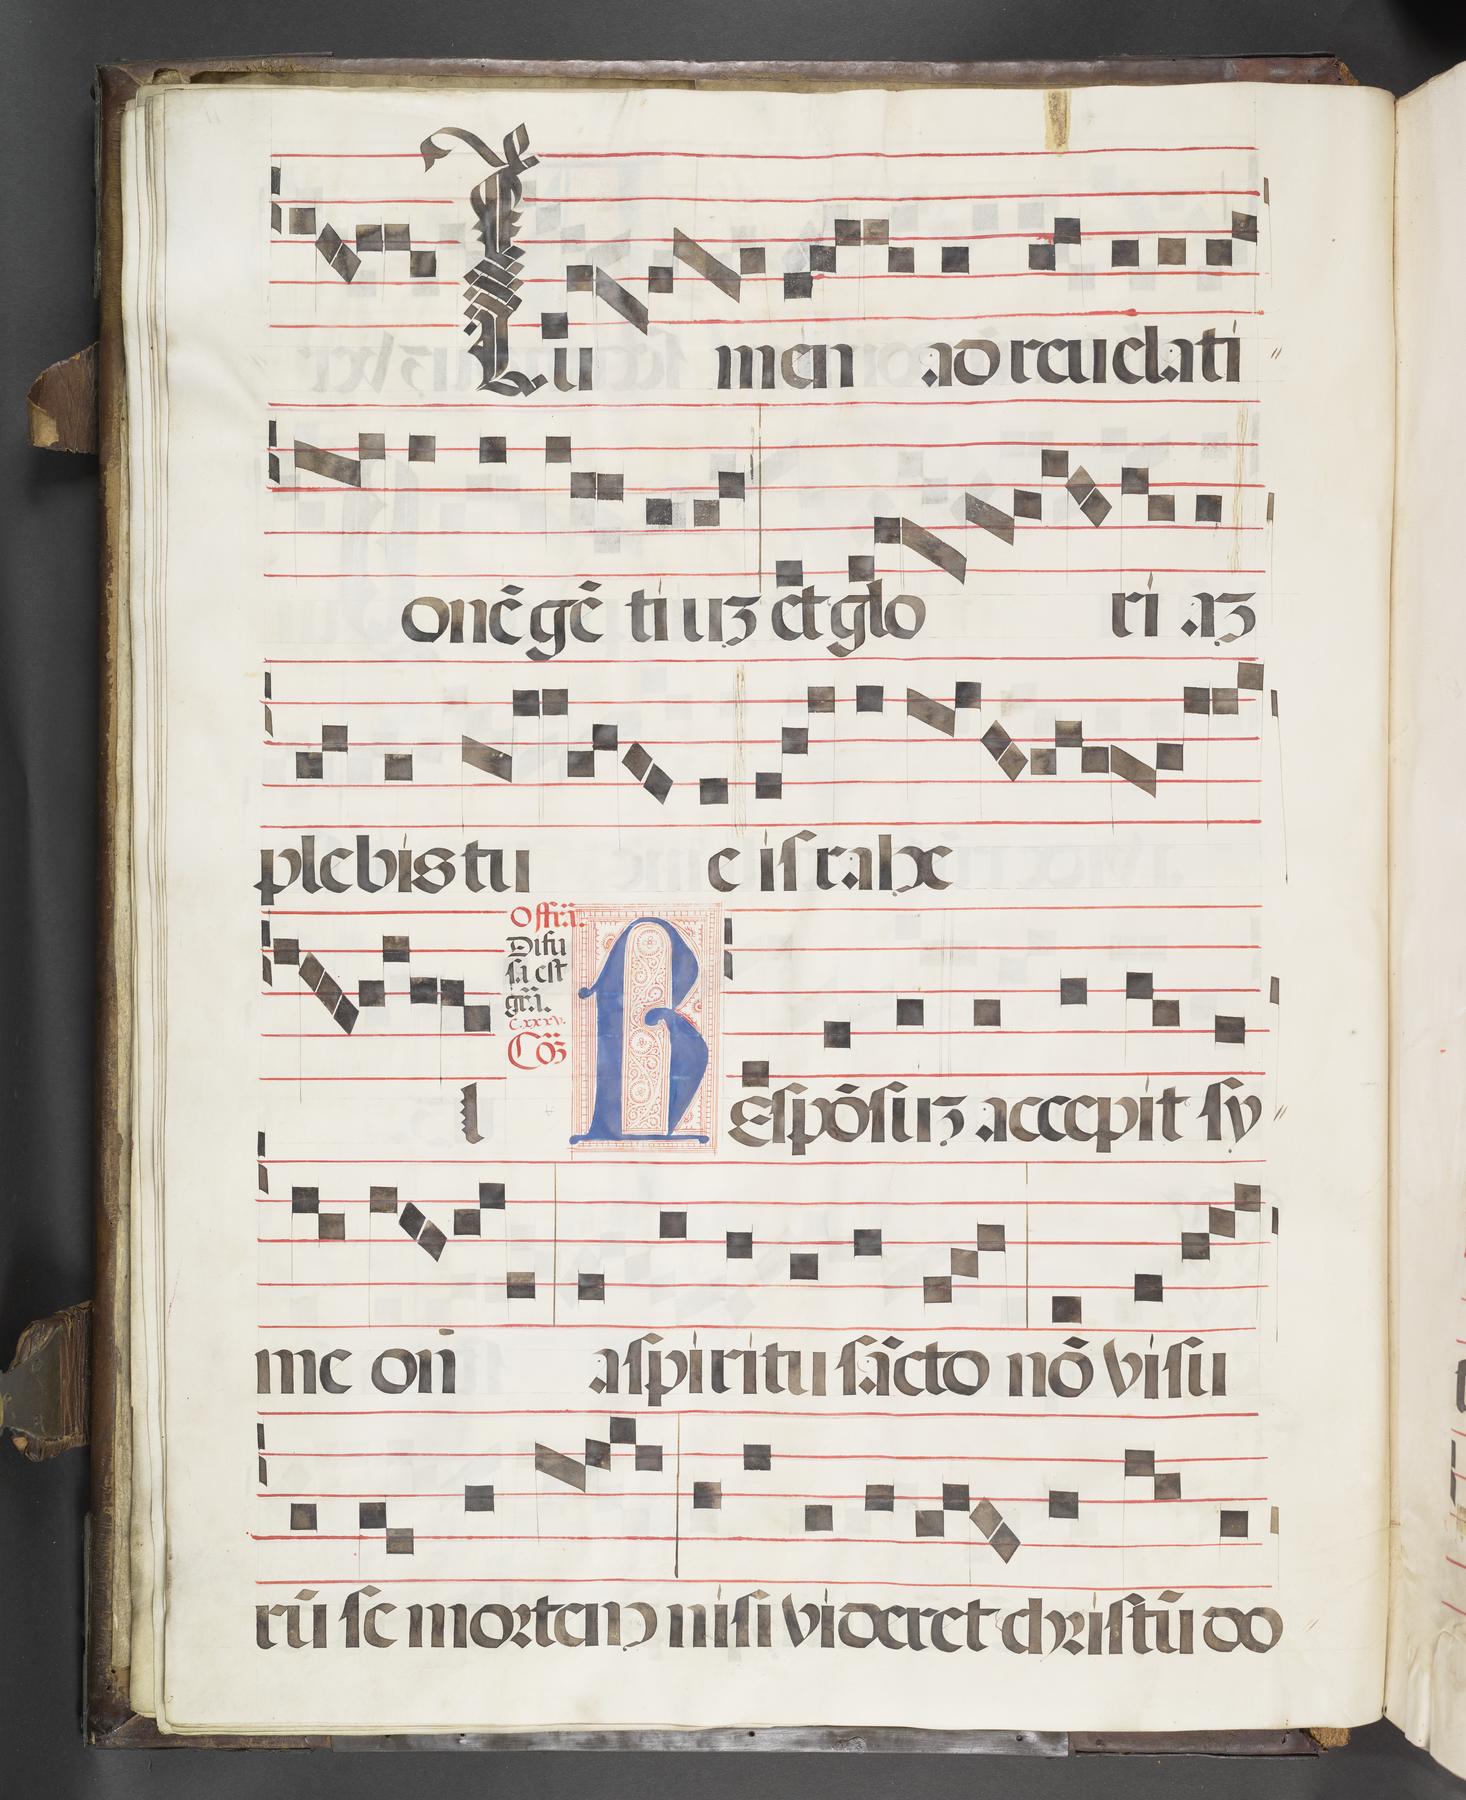 Lu men ad reuelati
onē gē tiuʒ et glo ri aʒ
plebis tu e israhe
Offrā.
Difu
sa est
grā.
c.xxxv.
Cōʒ
l Respōsuʒ accepit sy
me on a spiritu sācto nō visu
rū se mortem nisi videret christū do